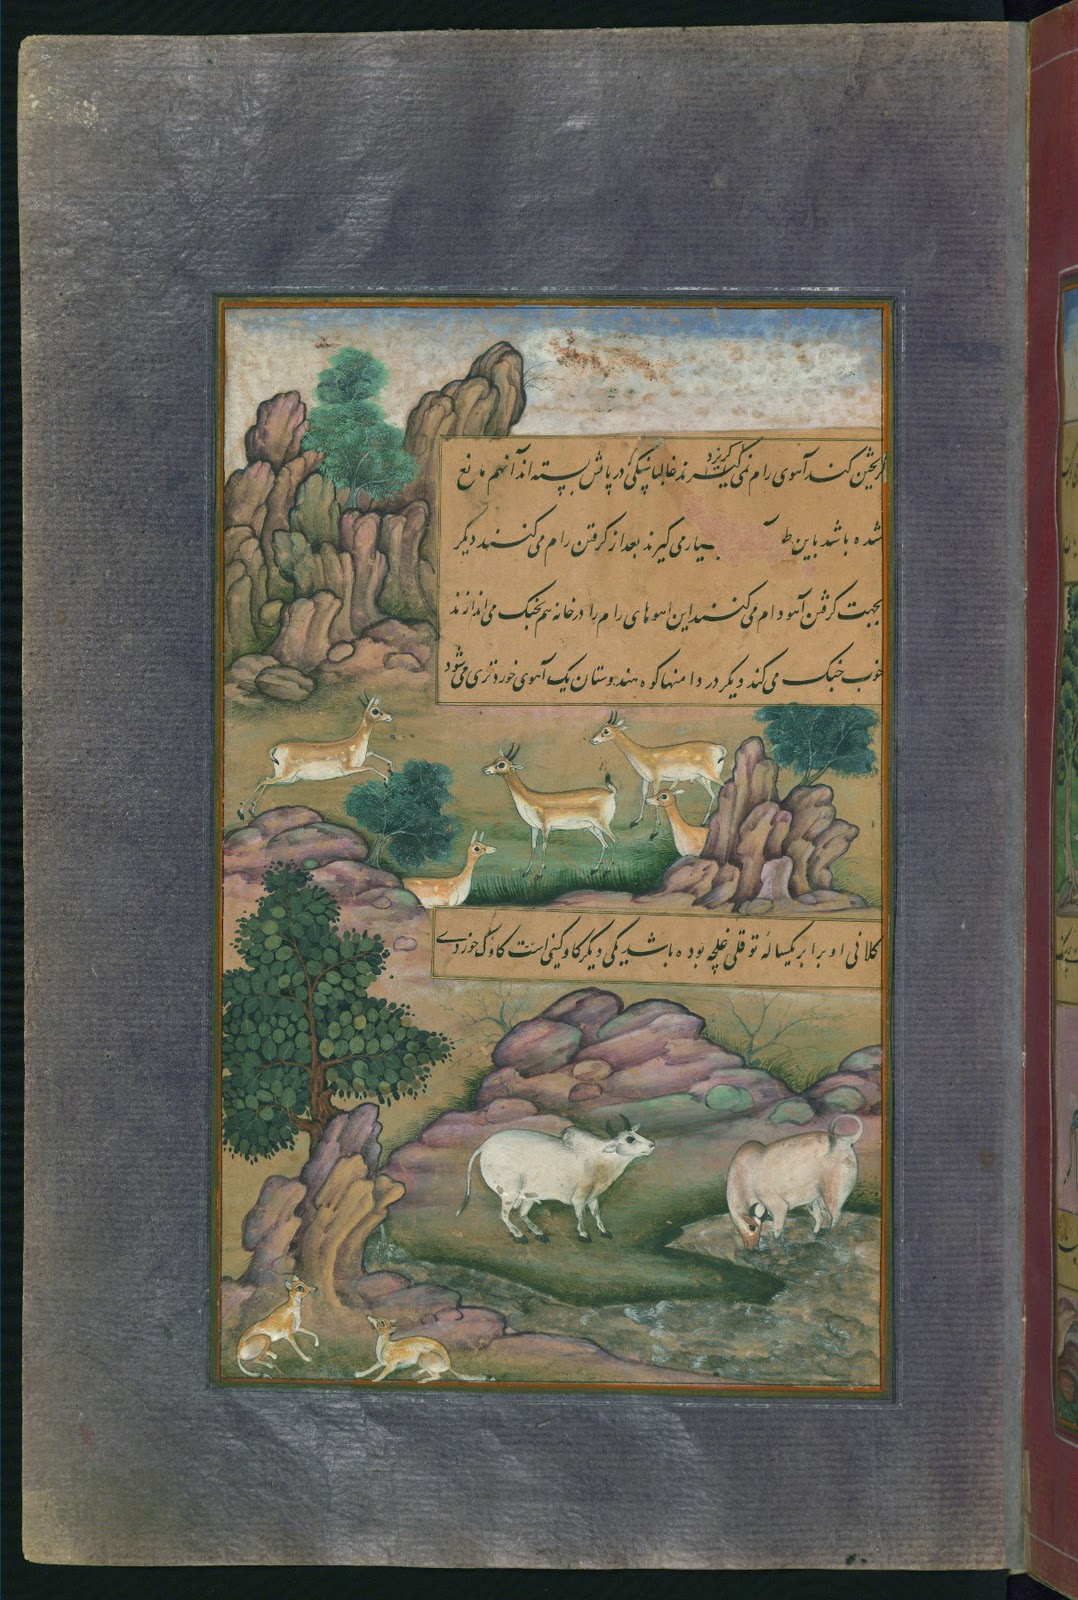 گریختن کند آهوی رام نمی‌گریزد غالبا سنگی در پاش بسته اند آنهم مانع
شده باشد باین ط بسیار می گیرند بعد از گرفتن رام می کنند دیگر
بجهت گرفتن آهو دام می کنند این اهوهای رام را در خانه هم بجنگ می اندازند
خوب جنگ می کند دیگر در دامنهاکوه هندوستان یک آهوی خوردتری می شود
کلانی او برابر یکساله توقلی غلچه بوده باشد یکی دیگر کاوکینی است کاوک خوردی